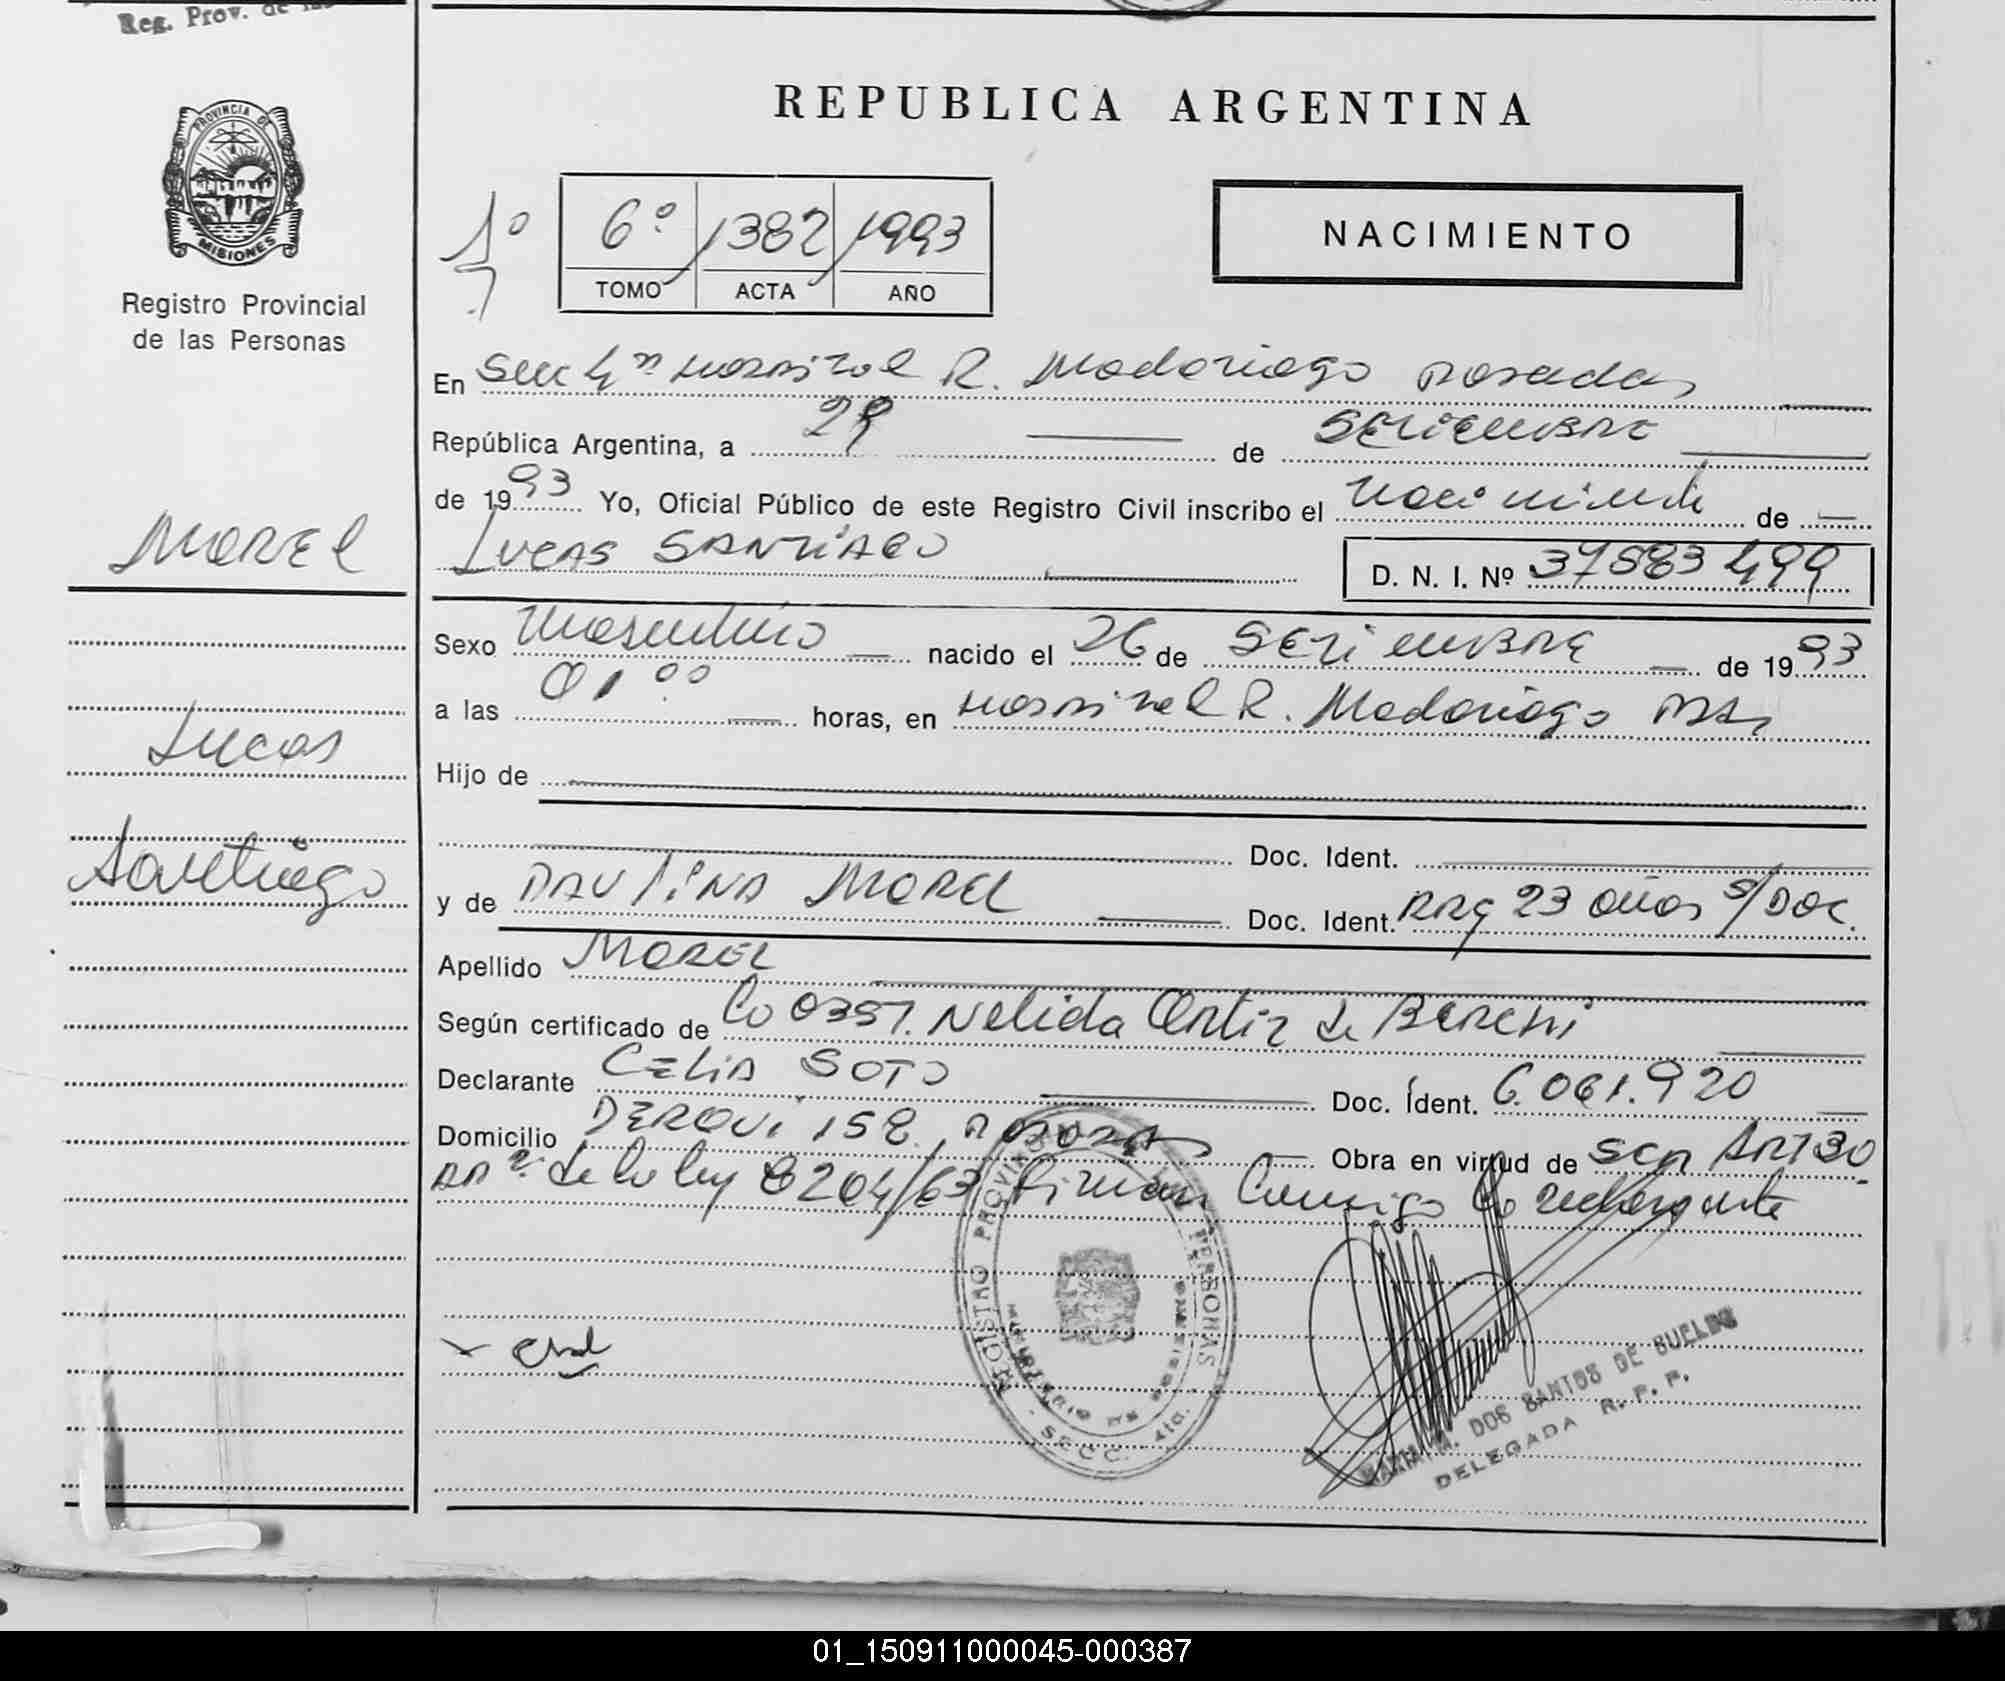 Reg. Prov. de las
PROVINCIA DE
MISIONES
Registro Provincial
de las Personas
MOREL
Lucas
Santiago
REPUBLICA ARGENTINA
1º
6º 1382 1993
TOMO ACTA AÑO
NACIMIENTO
En Secc 4ª Hospital R. Madariaga Posadas
República Argentina, a 29 de SETIEMBRE
de 1993 Yo, Oficial Público de este Registro Civil inscribo el Nacimiento de
LUCAS SANTIAGO
D. N. I. Nº 37583499
Sexo Masculino nacido el 26 de SETIEMBRE de 1993
a las 01ºº horas, en Hospital R. Madariaga Pdas
Hijo de
Doc. Ident.
y de PAULINA MOREL Doc. Ident. Arg 23 años S/DOC.
Apellido MOREL
Según certificado de Co 0357. Nelida Ortiz de Berchi
Declarante CELIA SOTO Doc. Ident. 6.061.920
Domicilio DERQUI 158 Posadas Obra en virtud de SCn Art 30
de la ley 8204/63 Firman Conmigo la declarante
REGISTRO PROVINCIAL PERSONAS
MINISTERIO DE GOBIERNO
SECC. 4ta.
MARIA M. DOS SANTOS DE BUELDO
DELEGADA R. P. P.
01_150911000045-000387